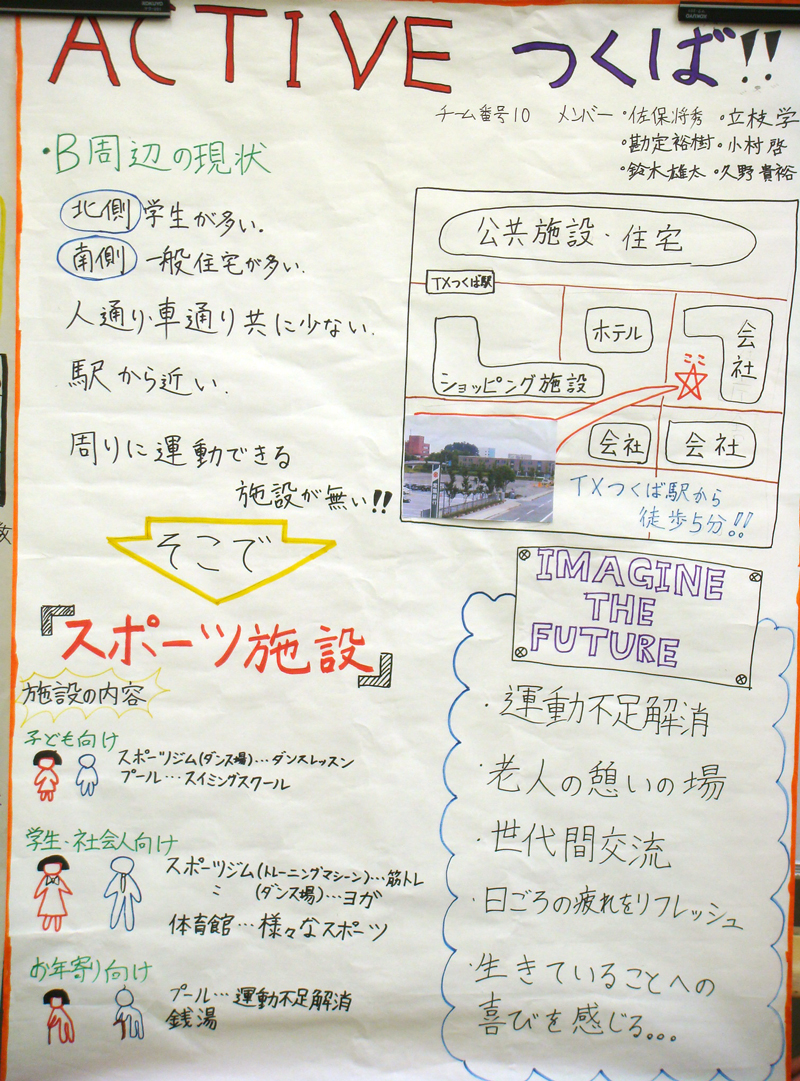 ACTIVE つくば!!
チーム番号10 メンバー ・佐保将秀 ・立枝学
・勘定裕樹 ・小村啓
・鈴木雄太 ・久野貴裕
・B周辺の現状
北側 学生が多い.
南側 一般住宅が多い.
人通り・車通り共に少ない.
駅から近い.
周りに運動できる
施設が無い!!
公共施設・住宅
TXつくば駅
ホテル
会社
ショッピング施設
ここ
会社
会社
TXつくば駅から
徒歩5分!!
そこで
『スポーツ施設』
施設の内容
子ども向け
スポーツジム(ダンス場)…ダンスレッスン
プール…スイミングスクール
学生・社会人向け
スポーツジム(トレーニングマシーン)…筋トレ
〃 (ダンス場)…ヨガ
体育館…様々なスポーツ
お年寄り向け
プール…運動不足解消
銭湯
IMAGINE
THE
FUTURE
・運動不足解消
・老人の憩いの場
・世代間交流
・日ごろの疲れをリフレッシュ
・生きていることへの
喜びを感じる...